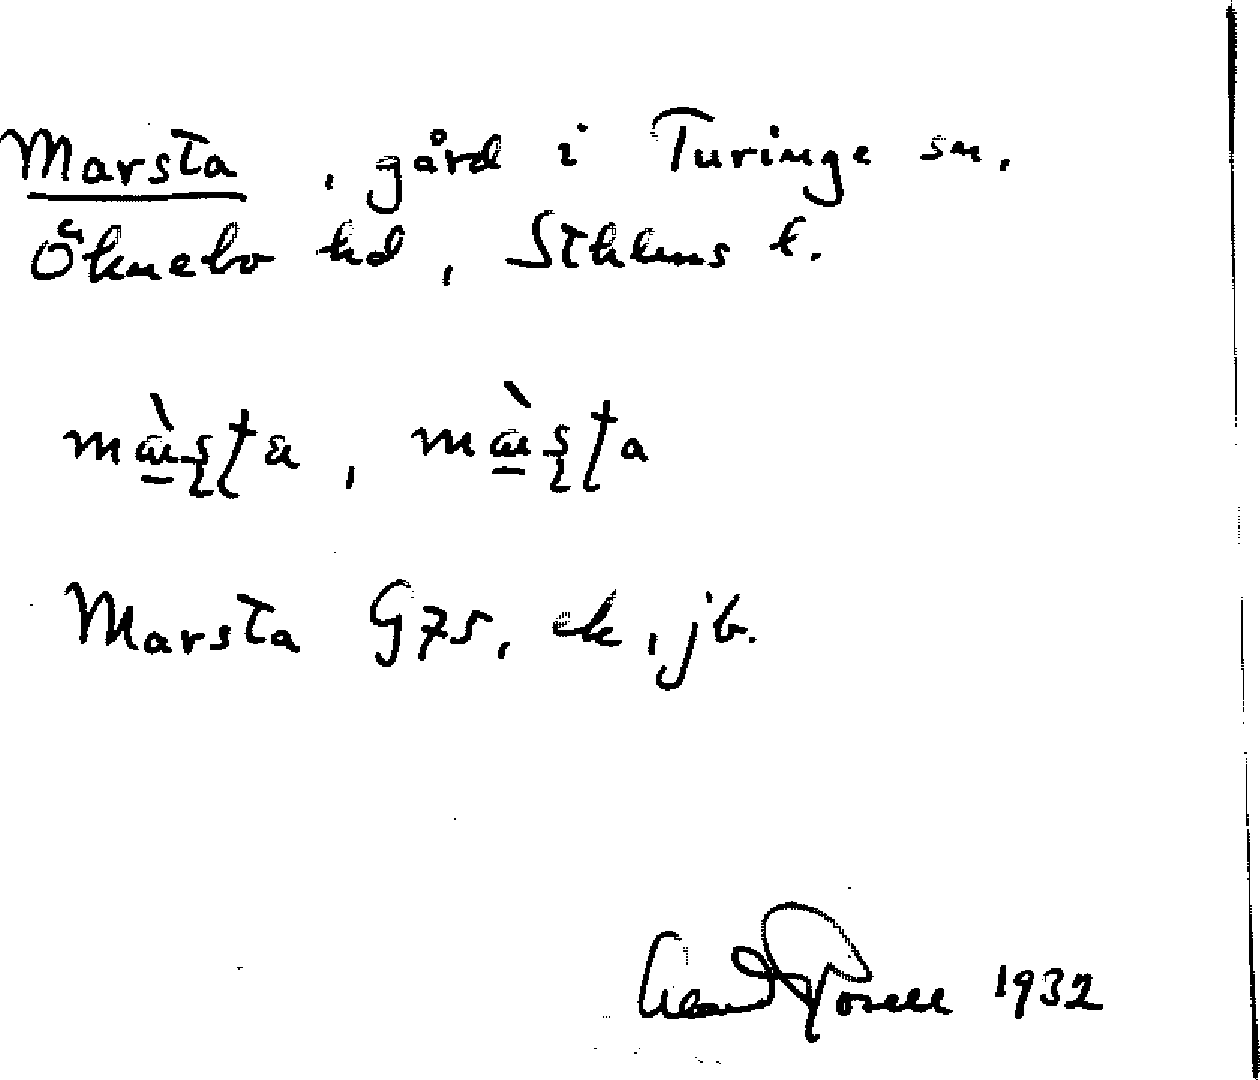 Marsta, gård i Turinge sn.
Öknebo hd, Sthlms l.
Marsta G75, ek, jb.
1932